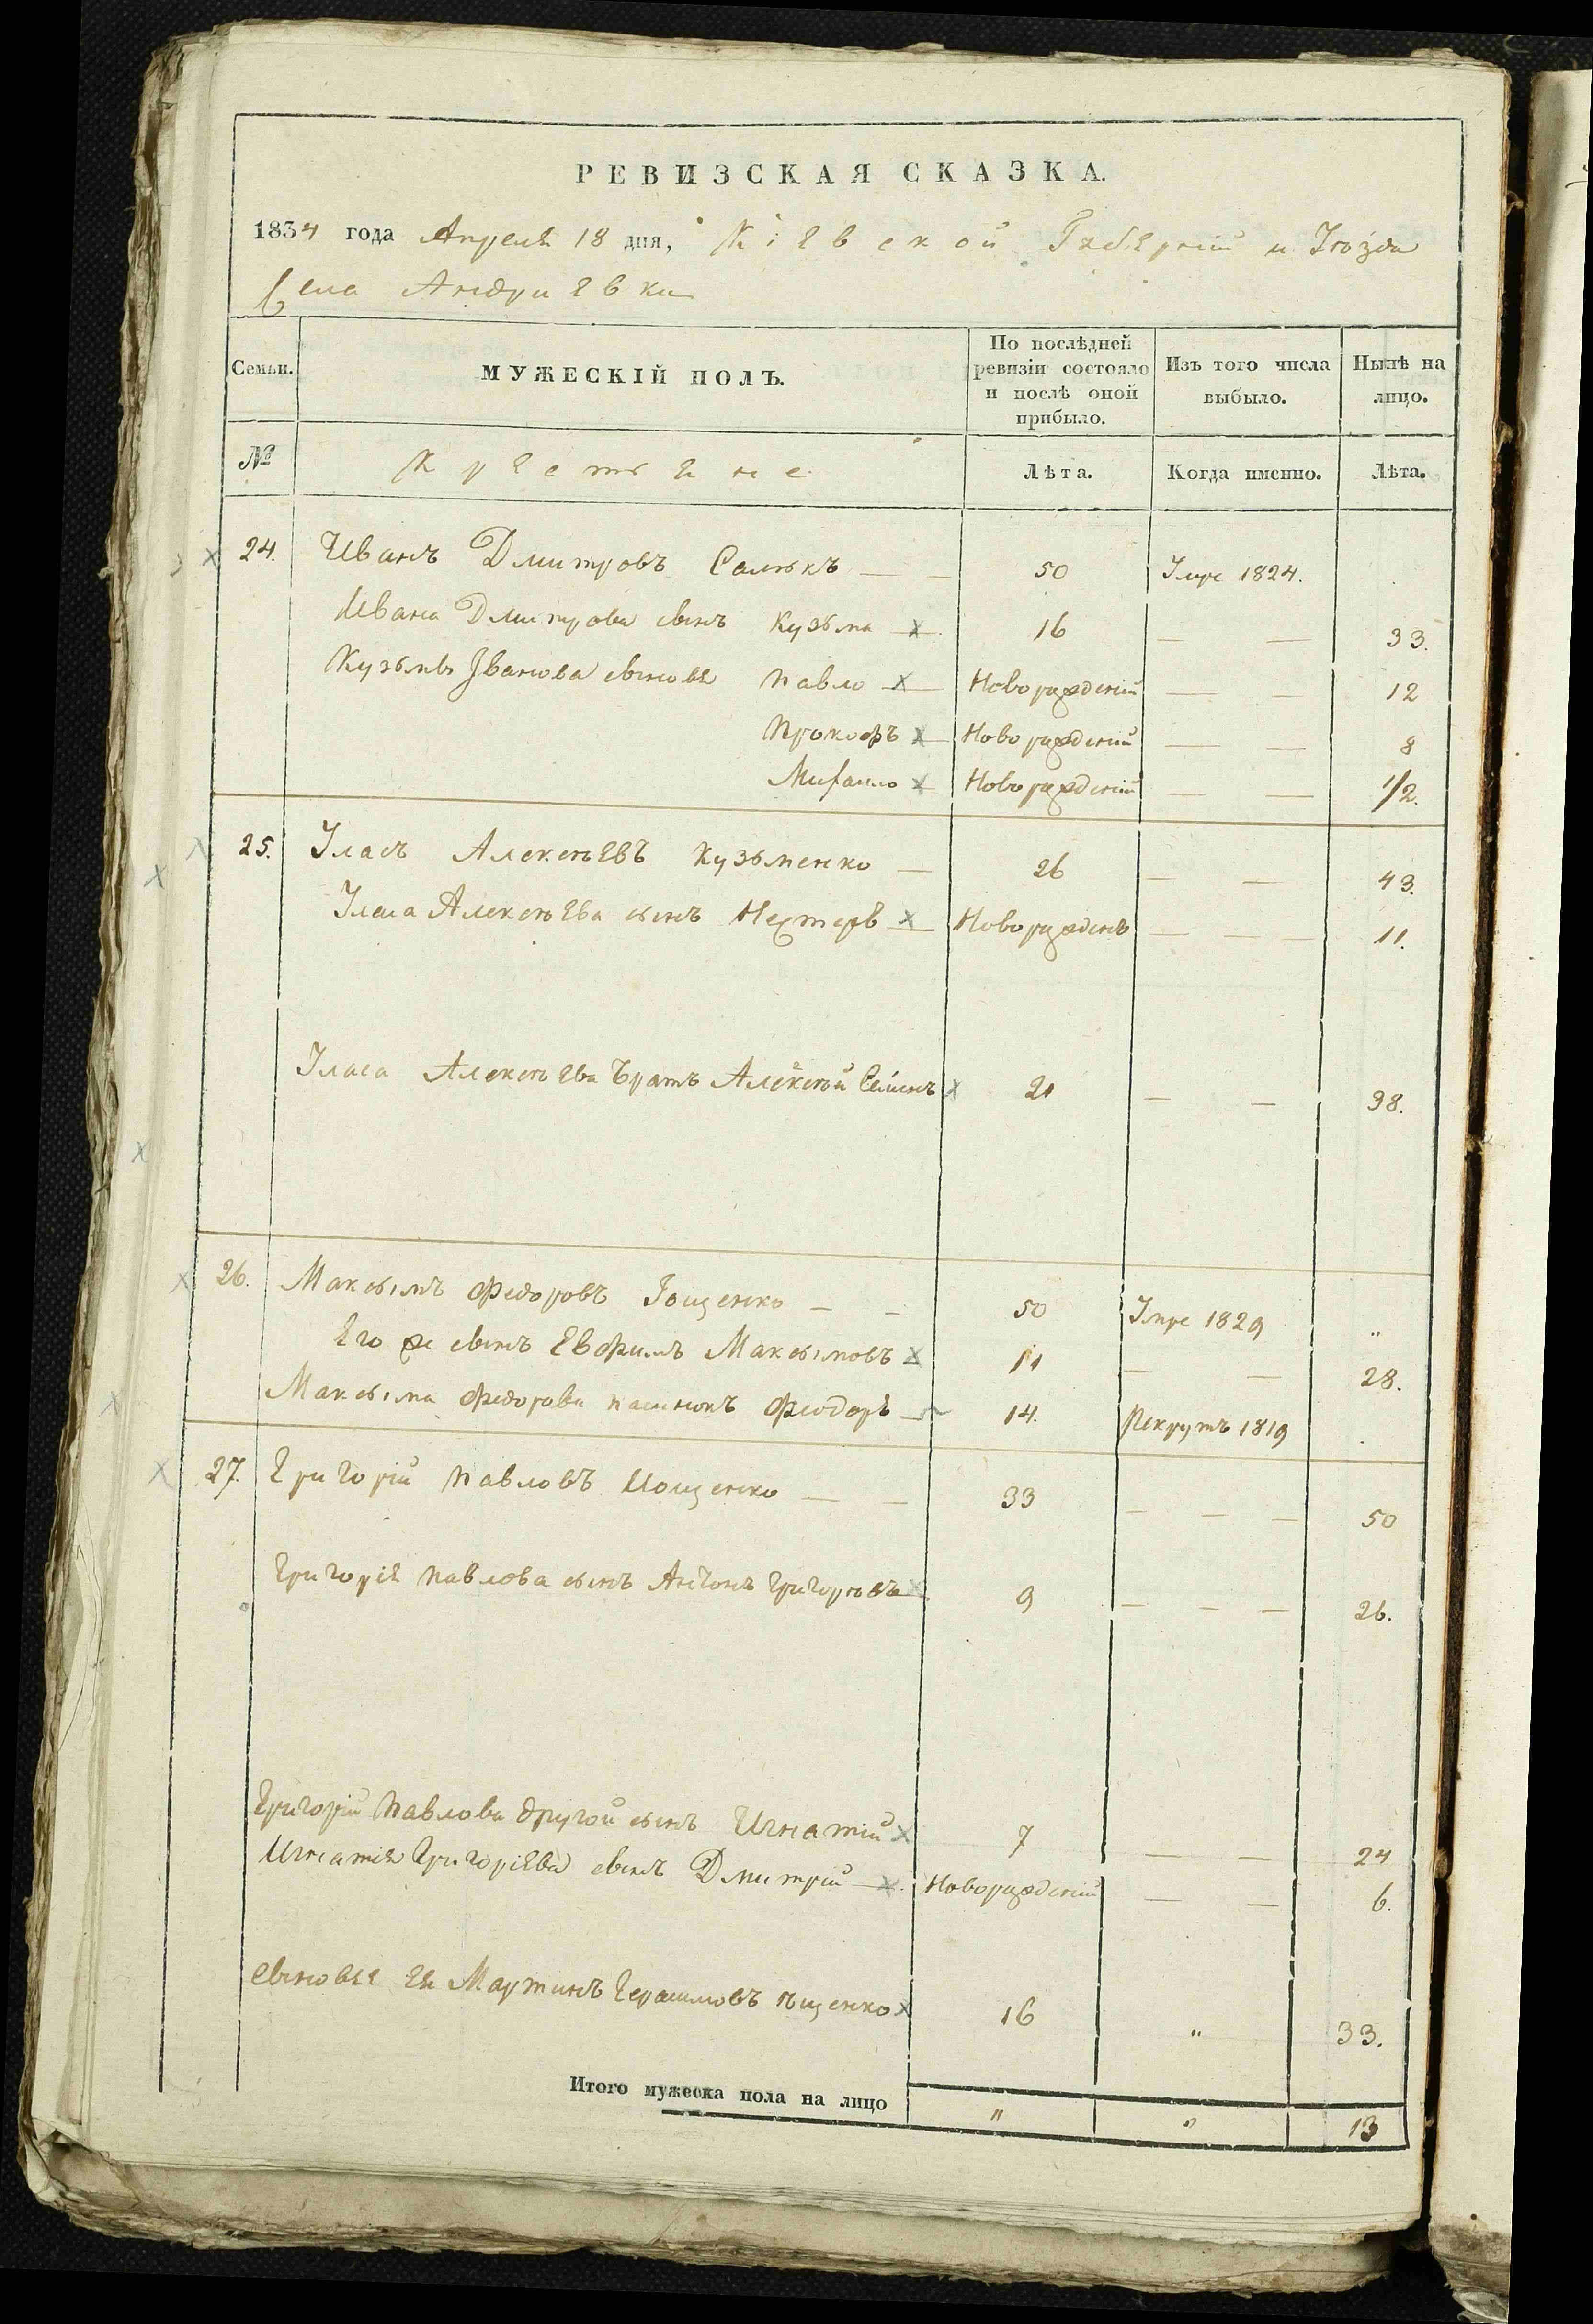 РЕВИЗСКАЯ СКАЗКА.
1834 года Апреля 18 дня, Кіевской Губерніи и Уѣзда
Села Андриевки
Семьи. МУЖЕСКІЙ ПОЛЪ. По послѣдней ревизіи состояло и послѣ оной прибыло. Изъ того числа выбыло. Нынѣ на лицо.
№ Крестьяне Лѣта. Когда именно. Лѣта.
24. Иванъ Дмитровъ 50 Умре 1824.
Ивана Дмитрова сынъ Кузьма 16 — — 33.
Кузьмы Іванова сыновя Павло Новорожденій — — 12
Прокофъ Новорожденій — — 8
Михаило Новорожденій — — 1/2.
25. Уласъ Алексѣевъ Кузьменко — 26 — — 43.
Уласа Алексѣева сынъ Нестеръ Новорожденъ — — — 11.
Уласа Алексѣева братъ Алексѣй 21 — — 38.
26. Максымъ Федоровъ — — 50 Умре 1829 "
Его же сынъ Евфимъ Максымовъ 11 — — 28.
Максыма Федорова пасынокъ Феодоръ 14. Рекрутъ 1819
27. Григорій Павловъ Иощенко — — 33 — — — 50
Григорія Павлова сынъ Антонъ Григорювъ 9 — — — 26.
Григорія Павлова другой сынъ Игнатій 7 — — 24
Игнатія Григоріева сынъ Дмитрій Новорожденій — — 6.
Мартинъ Герасимовъ 16 " 33.
Итого мужеска пола на лицо " " 13